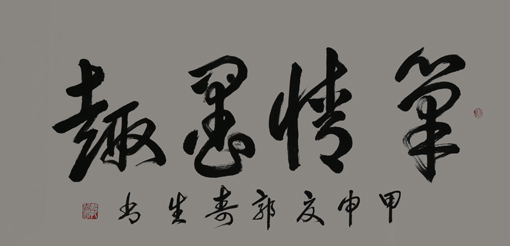 笔情墨趣
甲申夏郭寿生书